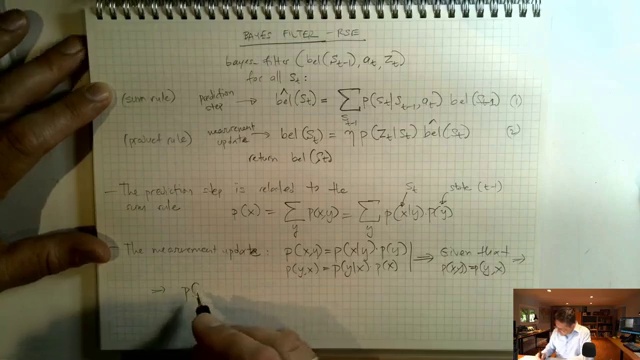 BAYES FILTER - RSE
bayes filter (bel(St-1), at, Zt)
for all St:
(sum rule) prediction step → bel^(St) = ∑St-1 p(St|St-1, at) bel(St-1) (1)
(product rule) measurement update → bel(St) = η p(Zt|St) bel^(St) (2)
return bel(St)
- The prediction step is related to the
sum rule p(x) = ∑y p(x,y) = ∑y p(x|y) p(y)
St state (t-1)
- The measurement update: p(x,y) = p(x|y) · p(y)
p(y,x) = p(y|x) p(x)
⟹ Given that p(x,y) = p(y,x) ⟹
⟹ p(